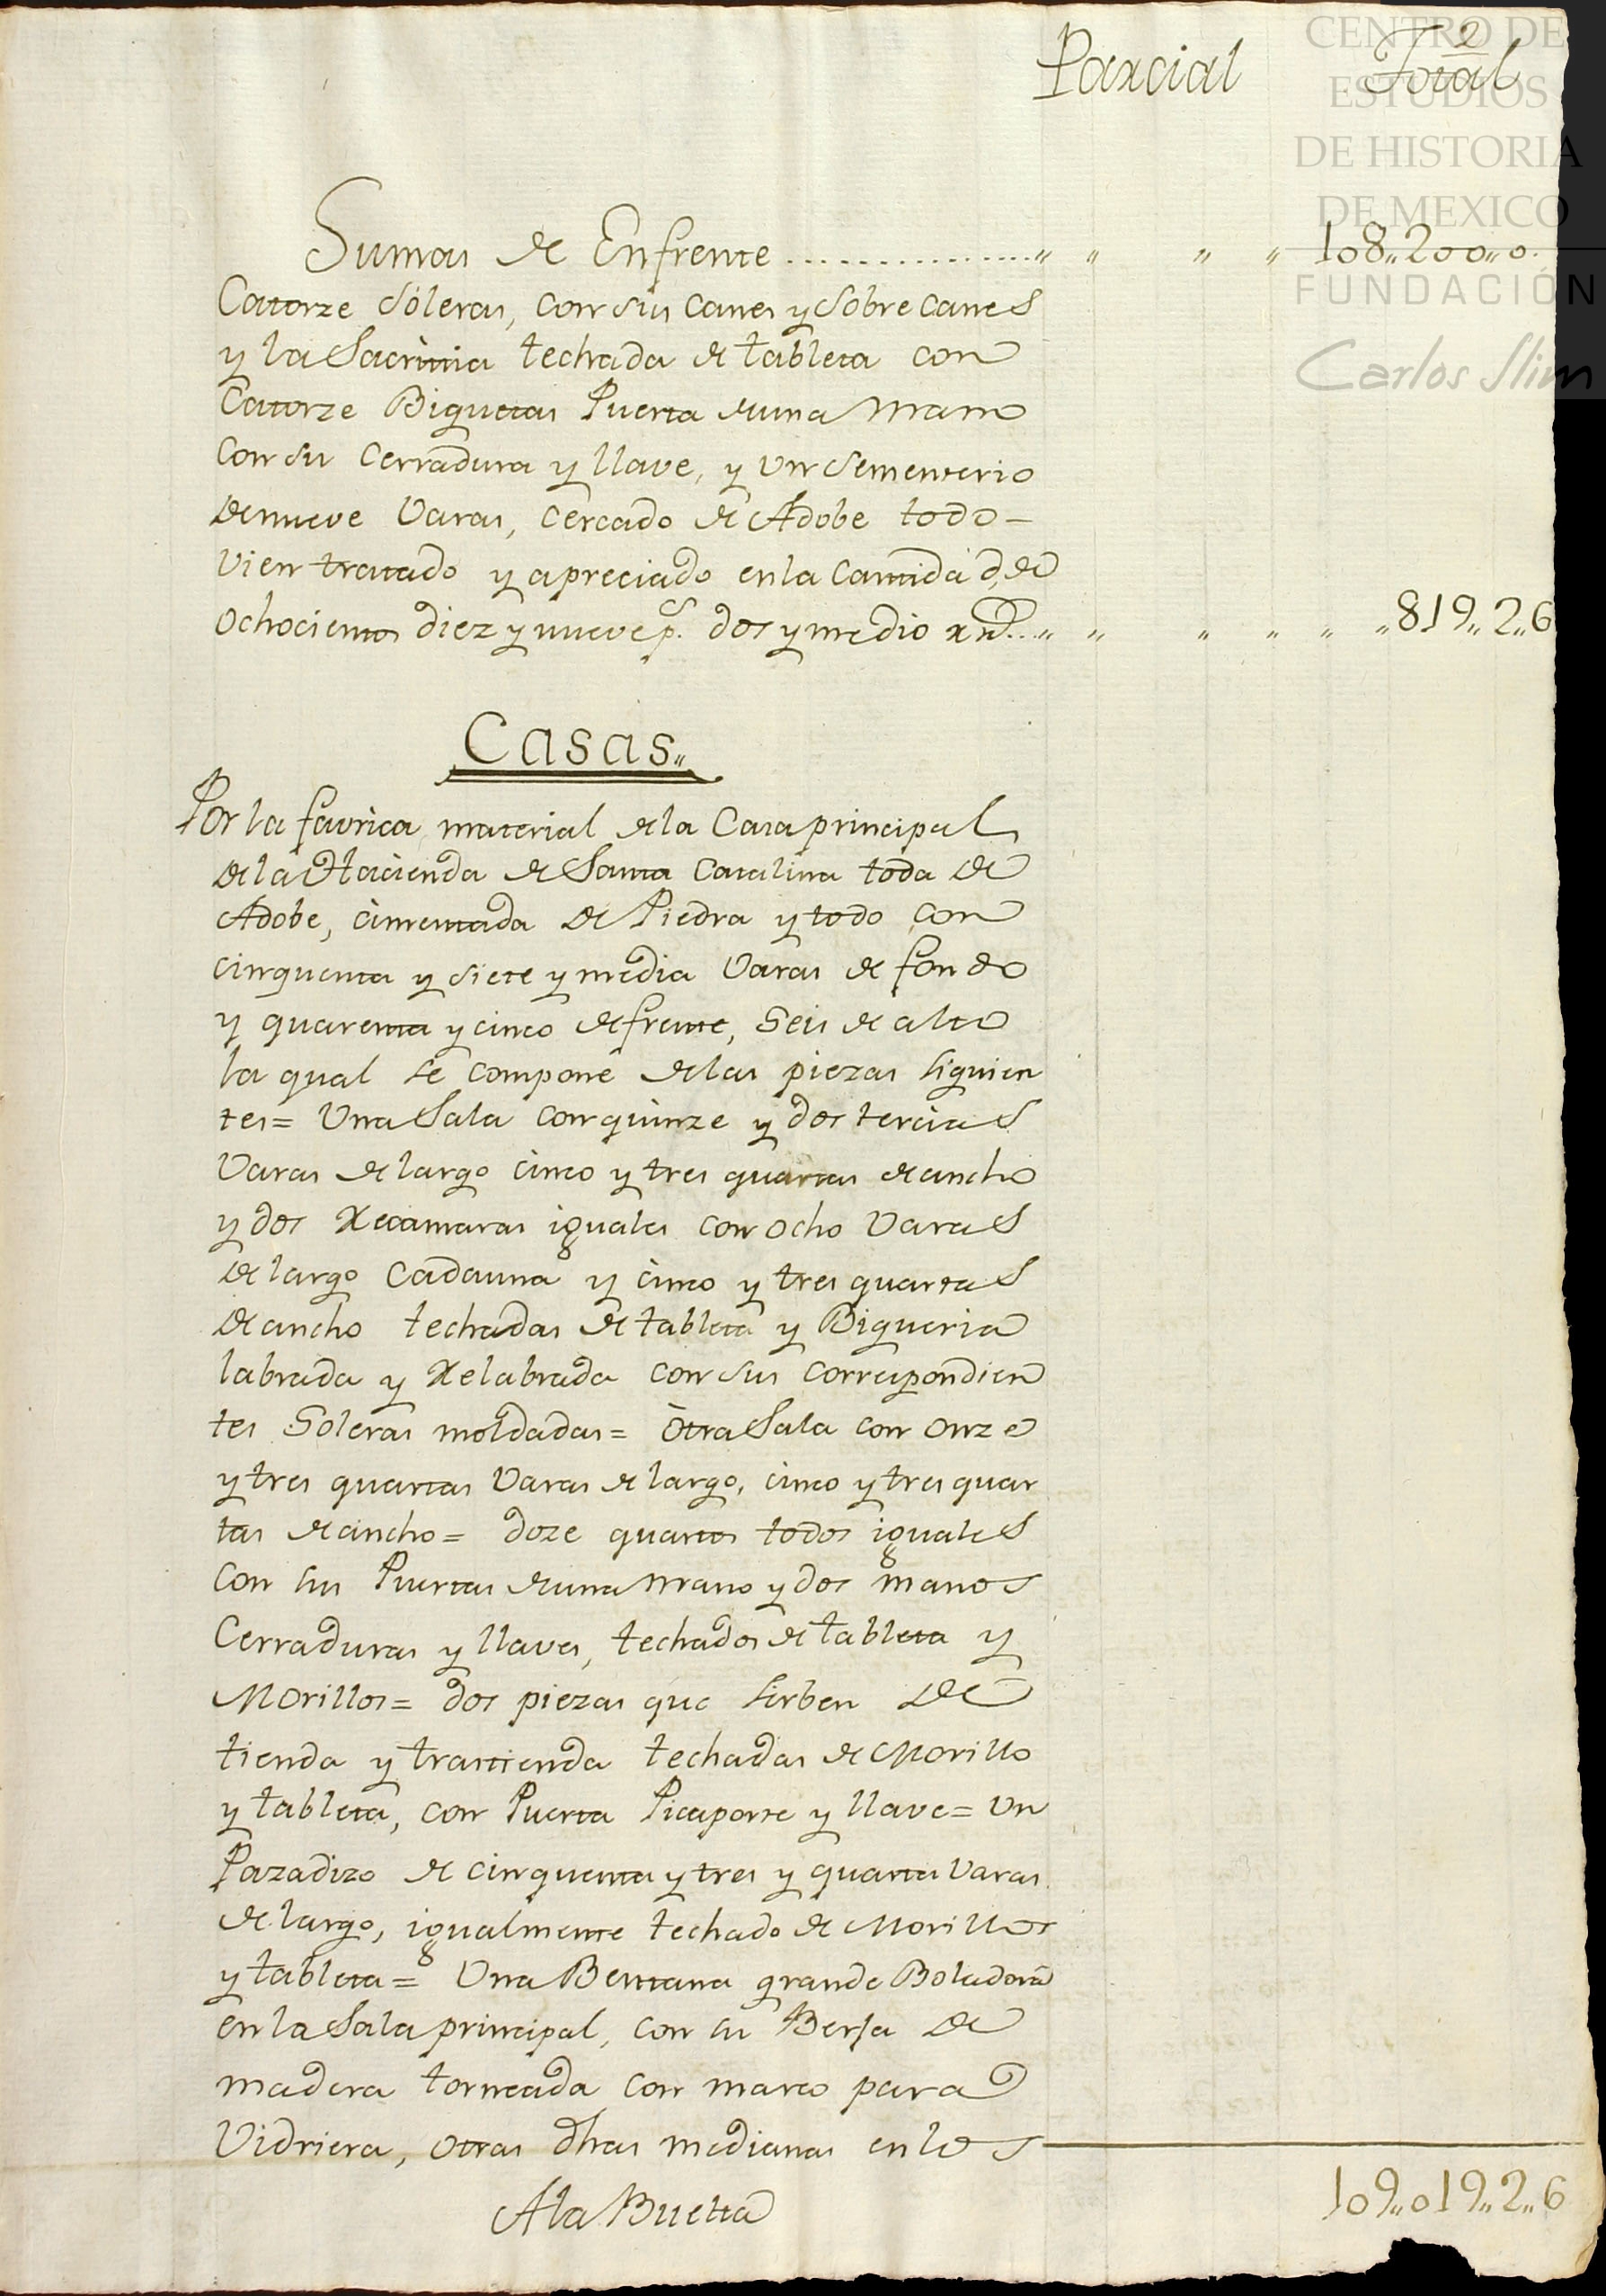 2
Parcial Total
CENTRO DE
ESTUDIOS
DE HISTORIA
DE MEXICO
FUNDACIÓN
Carlos Slim
Sumas de Enfrente ................ „ „ „ „ 108„200„0.
Catorze sóleras, con sus canes y sobre canes
y la Sacristia techada de tableta con
Catorze Biguetas Puerta de una mano
Con su Cerradura y llave, y un sementerio
de nueve Varas, cercado de Adobe todo—
vien tratado y apreciado en la Cantidad, de
Ochocientos diez y nueve ps. dos y medio rrs... „ „ „ „ „ „819„2„6
Casas„
Por la favrica material de la Casa principal
de la Hacienda de Santa Catalina toda de
Adobe, cimentada de Piedra y todo con
cinquenta y siete y media Varas de fondo
y quarenta y cinco de frente, Seis de alto
la qual se compone de las piezas siguien
tes= Una Sala con quinze y dos tercias
Varas de largo cinco y tres quartas de ancho
y dos Recamaras iguales con ocho Varas
de largo Cada una y cinco y tres quartas
de ancho techadas de tableta y Bigueria
labrada y Relabrada con sus correspondien
tes Soleras moldadas= Otra Sala con onze
y tres quartas Varas de largo, cinco y tres quar
tas de ancho= doze quartos todos iguales
con sus Puertas de una mano y dos manos
Cerraduras y llaves, techados de tableta y
Morillos= dos piezas que sirben de
tienda y trastienda techadas de Morillo
y tableta, con Puerta Picaporte y llave= Un
Pazadizo de cinquenta y tres y quarta Varas
de largo, igualmente techado de Morillos
y tableta= Una Bentana grande Boladora
en la Sala principal, con su Berja de
madera torneada con marco para
Vidriera, otras dhas medianas en los
A la Buelta 109„019„2„6